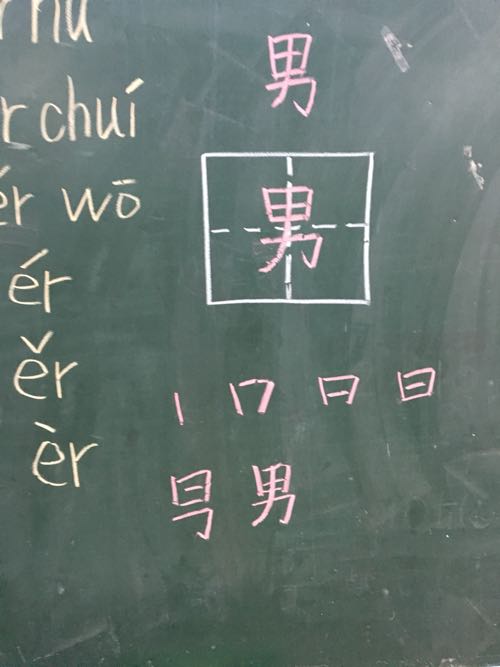 r hu
r chuí
ér wō
ér
ěr
èr
男
男
丨 冂 日
男